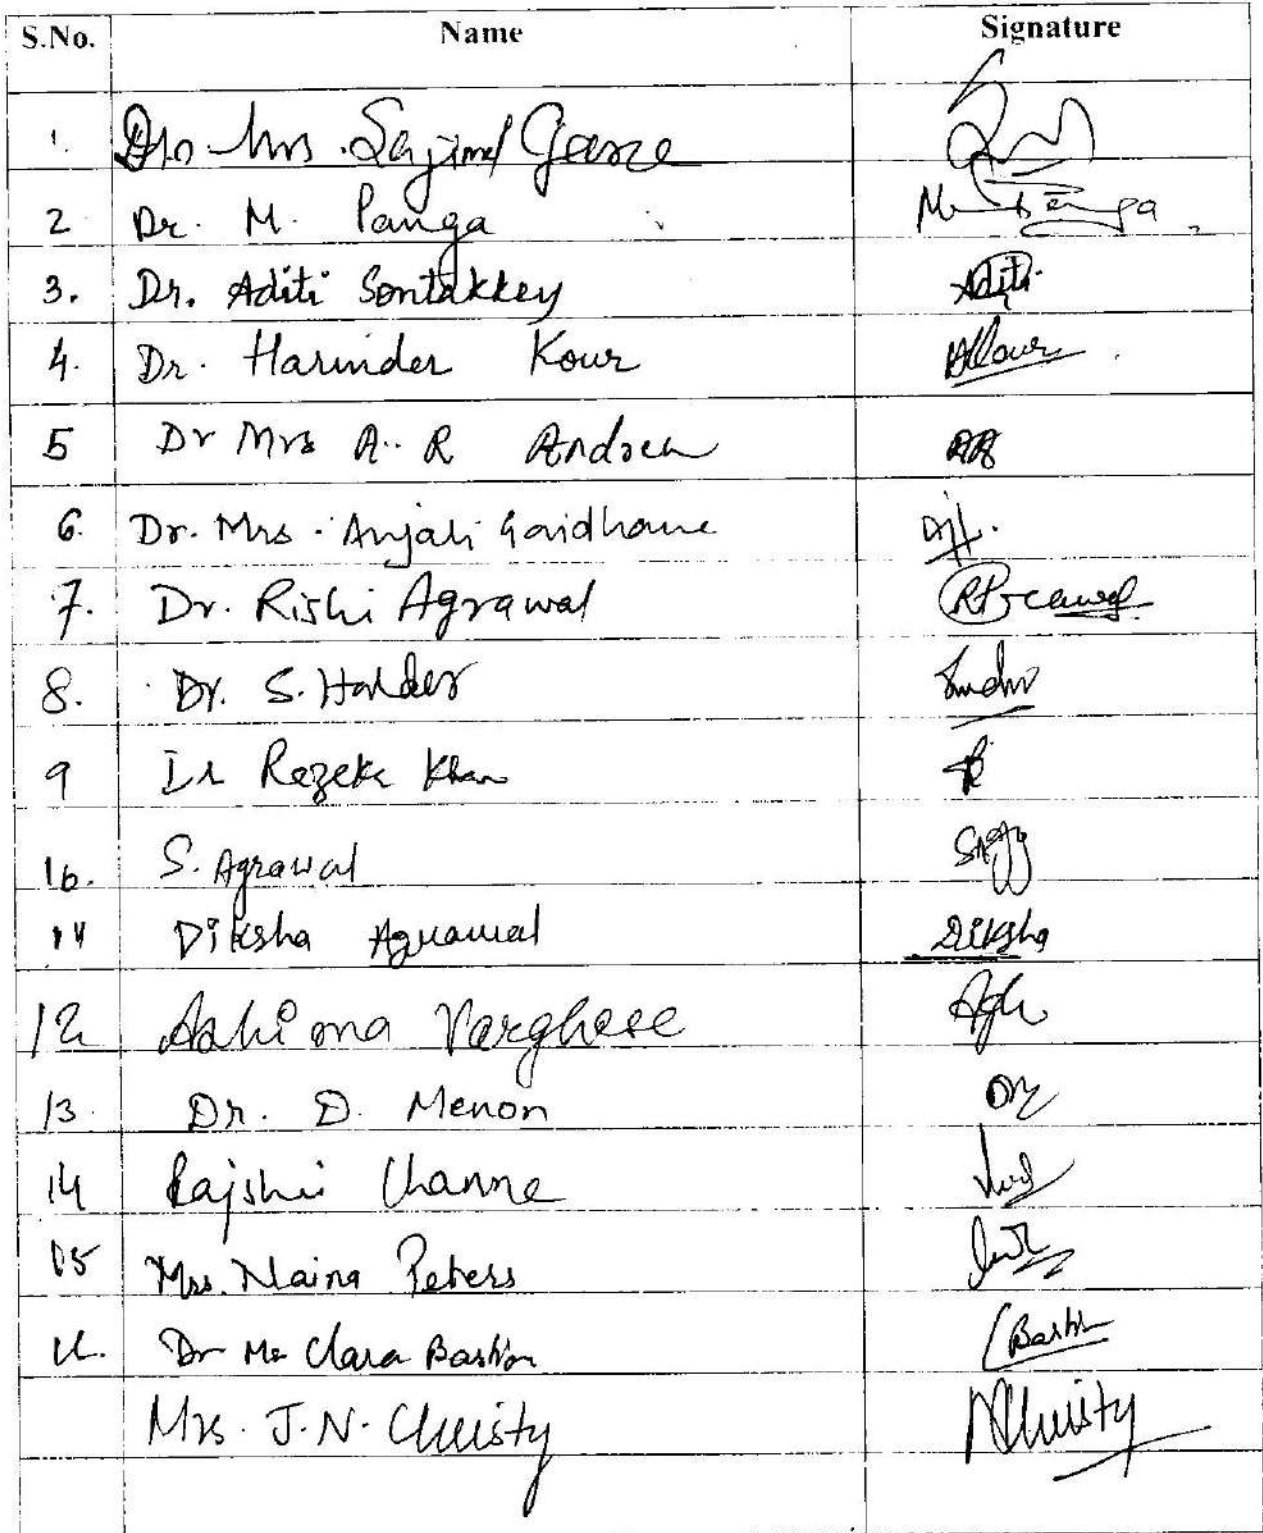 S.No. Name Signature
1. Mrs.
2 Dr. M. Panga
3. Dr. Aditi Sontakkey Aditi
4. Dr. Harinder Kour HKour
5 Dr Mrs A. R Andrew
6. Dr. Mrs. Anjali Gaidhane
7. Dr. Rishi Agrawal
8. Dr. S. Halder
9 Khan
10. S. Agrawal
11 Diksha Agrawal Diksha
12 Varghese
13. Dr. D. Menon
14 Rajshri Channe
15 Mrs. Naina Peters
Clara Bastian
Mrs. J.N. Christy Christy